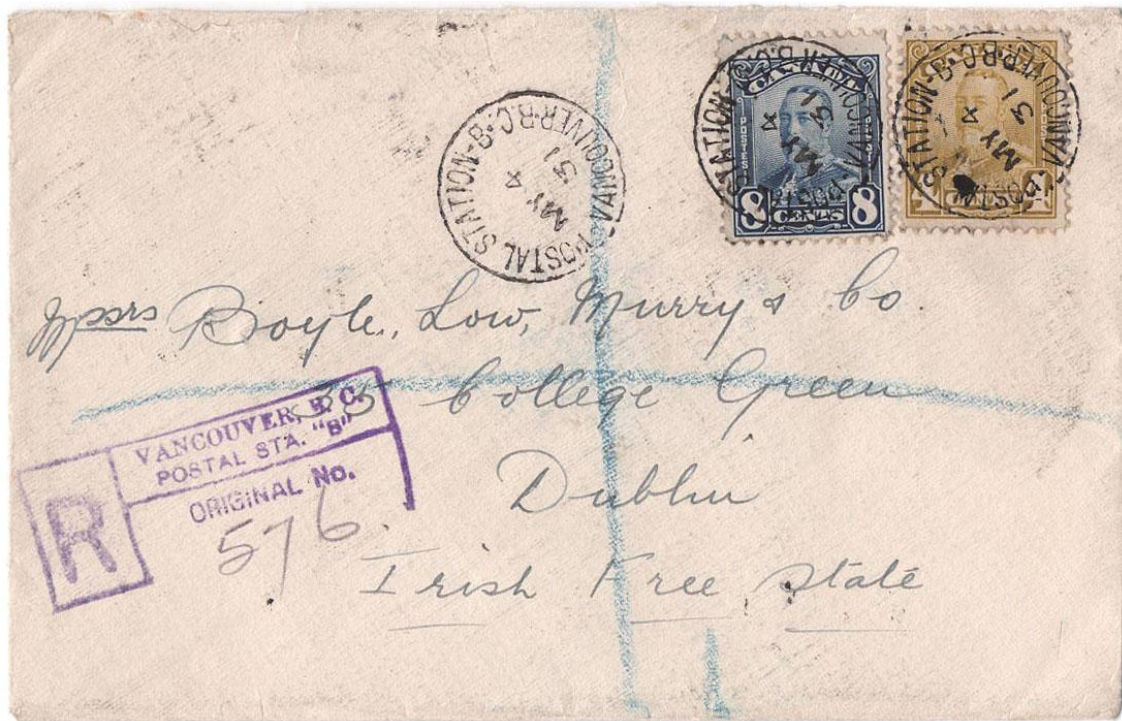 POSTAL STATION·B· VANCOUVER·B.C.
MY 4
31
POSTAL STATION VANCOUVER B.C.
MY 4
31
POSTES
8 CENTS 8
POSTAL STATION·B· VANCOUVER·B.C.
MY 4
31
Messrs Boyle, Low, Murry & Co.
35 College Green
Dublin
Irish Free State
R
VANCOUVER, B.C.
POSTAL STA. "B"
ORIGINAL No.
576.